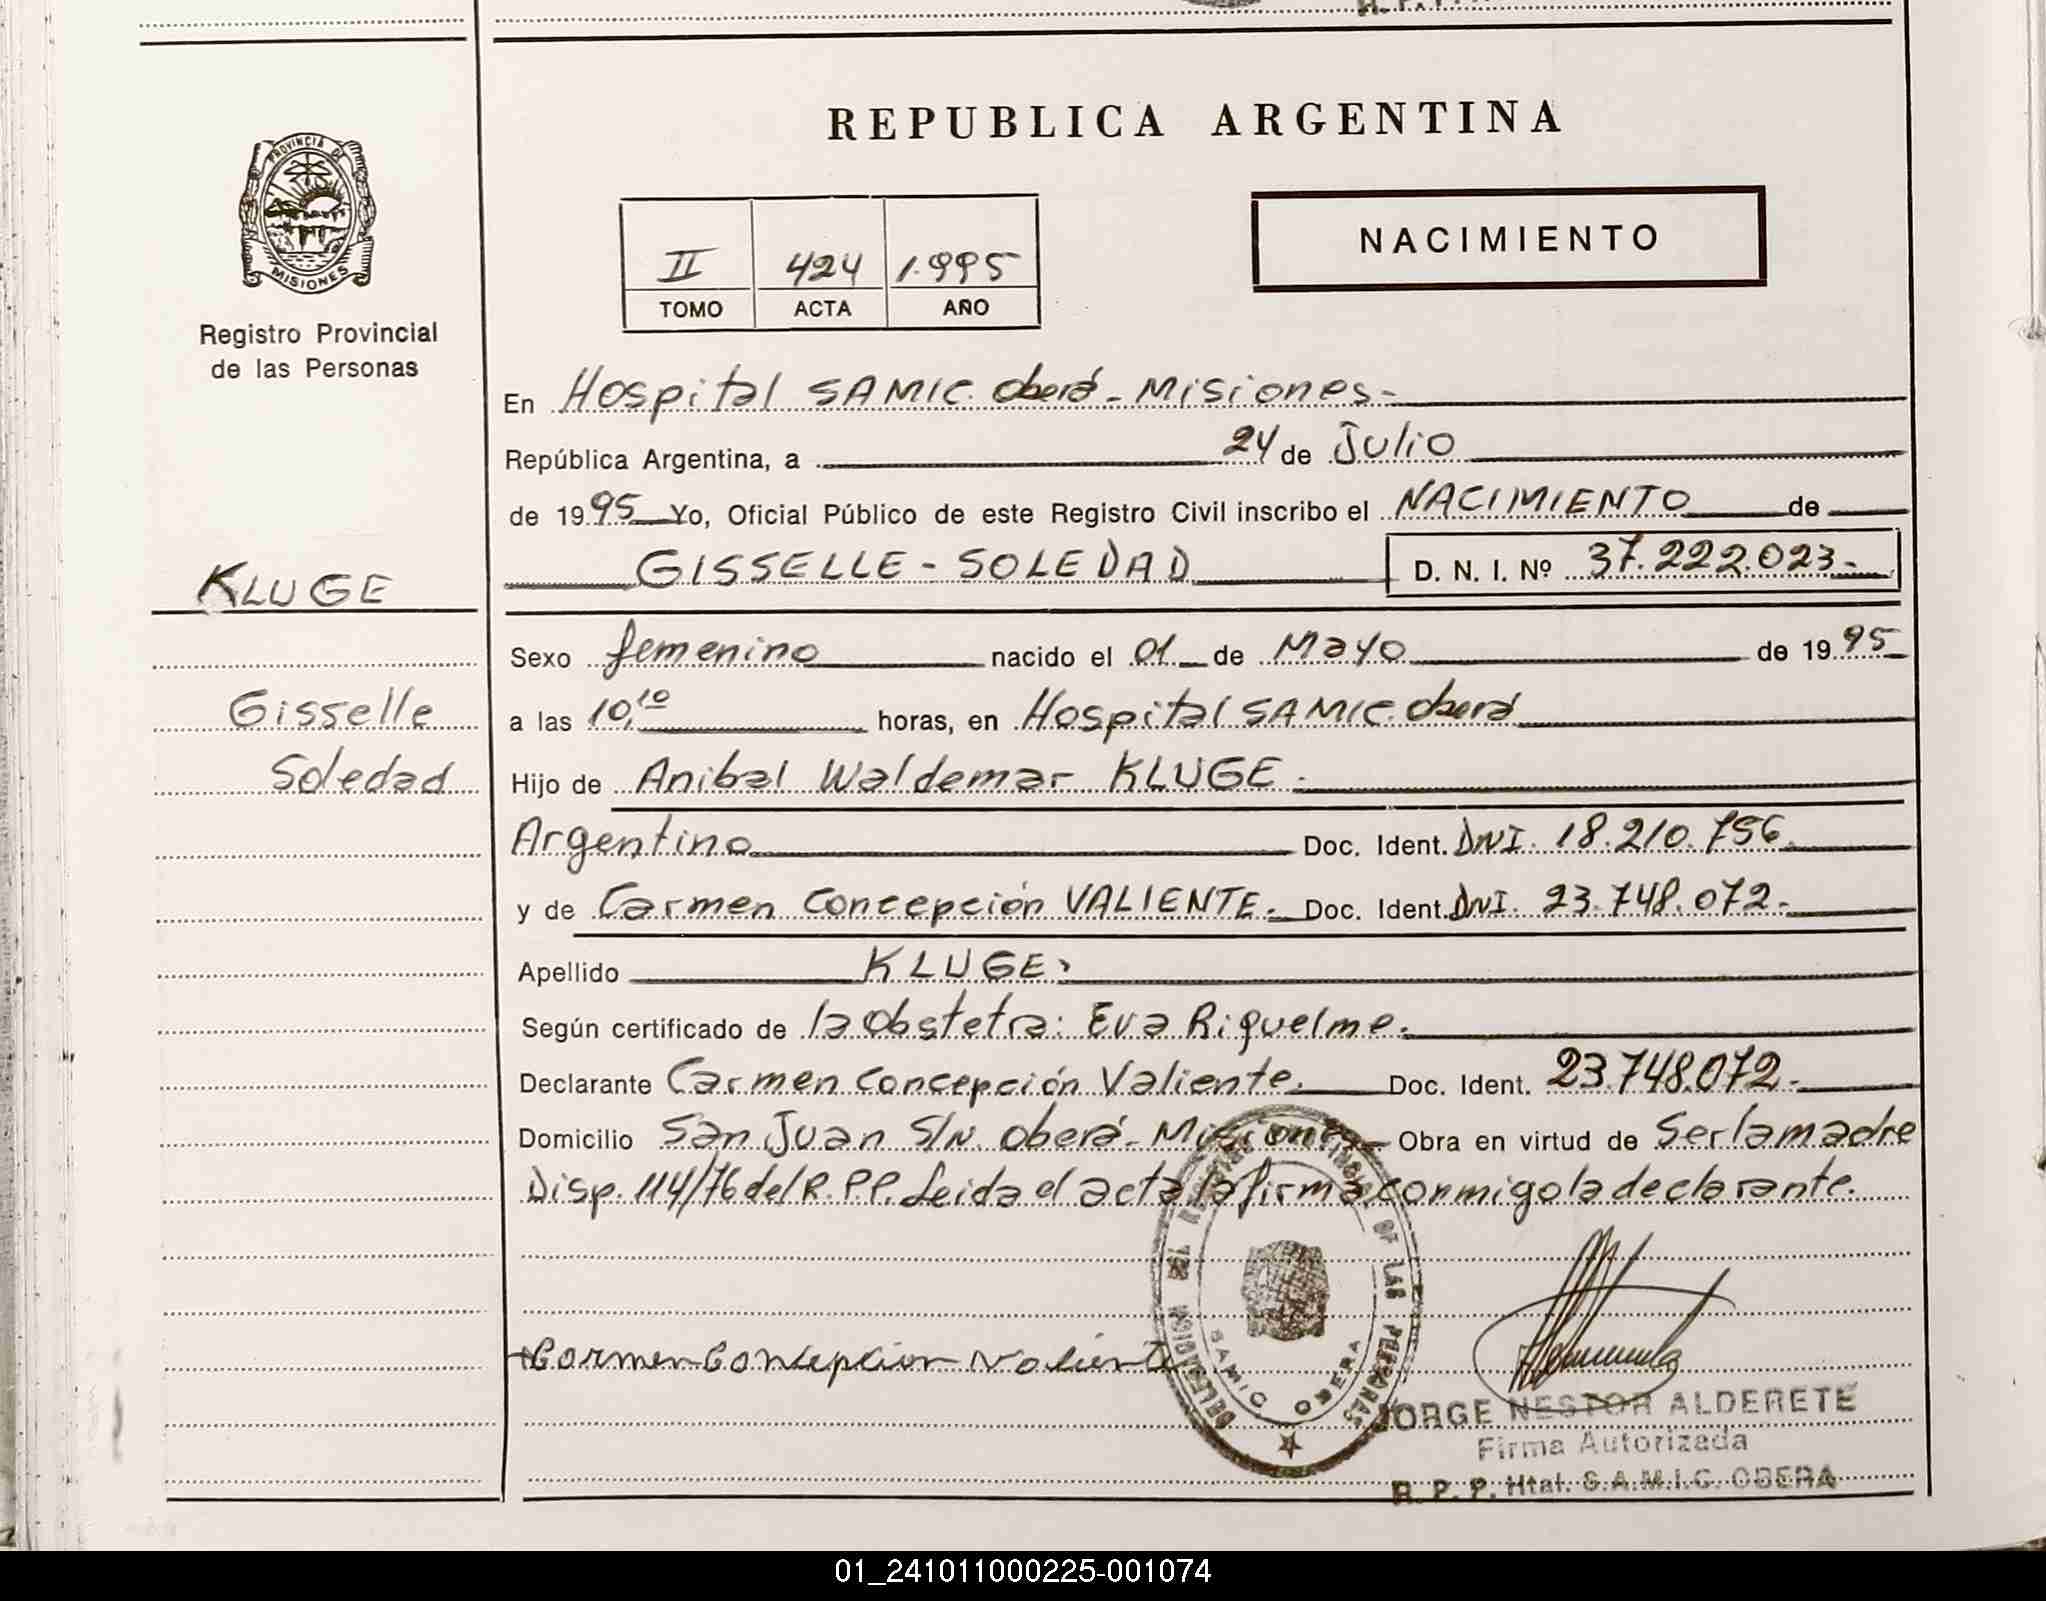 PROVINCIA DE
MISIONES
Registro Provincial
de las Personas
KLUGE
Gisselle
Soledad
REPUBLICA ARGENTINA
II 424 1.995
TOMO ACTA AÑO
NACIMIENTO
En Hospital SAMIC. Oberá - Misiones -
República Argentina, a 24 de Julio
de 1995 Yo, Oficial Público de este Registro Civil inscribo el NACIMIENTO de
GISSELLE - SOLEDAD D. N. I. Nº 37.222.023.-
Sexo femenino nacido el 01 de Mayo de 1995
a las 10,10 horas, en Hospital SAMIC. Oberá
Hijo de Anibal Waldemar KLUGE.
Argentino Doc. Ident. DNI. 18.210.756.
y de Carmen Concepción VALIENTE.- Doc. Ident. DNI. 23.748.072.-
Apellido KLUGE.
Según certificado de la Obstetra: Eva Riquelme.
Declarante Carmen Concepción Valiente. Doc. Ident. 23.748.072.-
Domicilio San Juan S/N. Oberá - Misiones Obra en virtud de Ser la madre
Disp. 114/76 del R.P.P. Leida el acta la firma conmigo la declarante.
Carmen Concepcion Valiente
DELEGACION DEL REGISTRO PROVINCIAL DE LAS PERSONAS
SAMIC OBERA
JORGE NESTOR ALDERETE
Firma Autorizada
R. P. P. Htal. S.A.M.I.C. OBERA
01_241011000225-001074